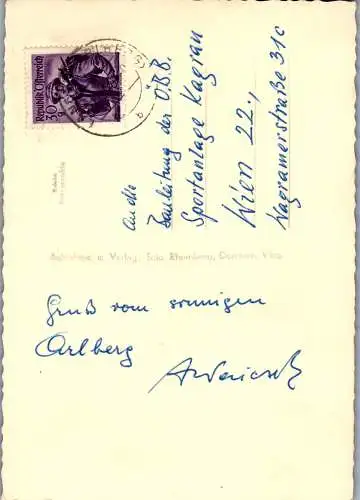 Republik Österreich
30 g
An die
Bauleitung der Ö.B.B.
Sportanlage Kagran
Wien 22.,
Wagramerstraße 31c
Aufnahme u. Verlag: Foto Rhomberg, Dornbirn, Vlbg.
Gruß vom sonnigen
Arlberg